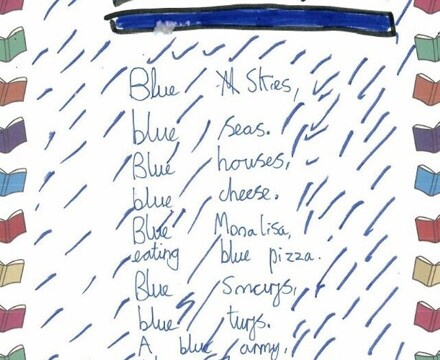 Blue Skies,
blue seas.
Blue houses,
blue cheese.
Blue Monalisa,
eating blue pizza.
Blue Smurfs,
blue turfs.
A blue army.